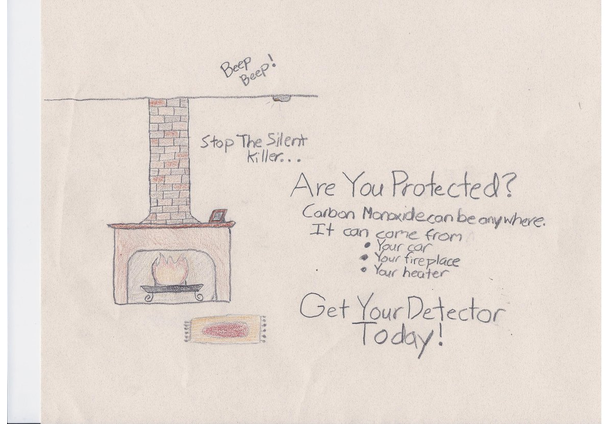 Beep
Beep!
Stop The Silent
Killer...
Are You Protected?
Carbon Monoxide can be anywhere.
It can come from
• Your car
• Your fireplace
• Your heater
Get Your Detector
Today!